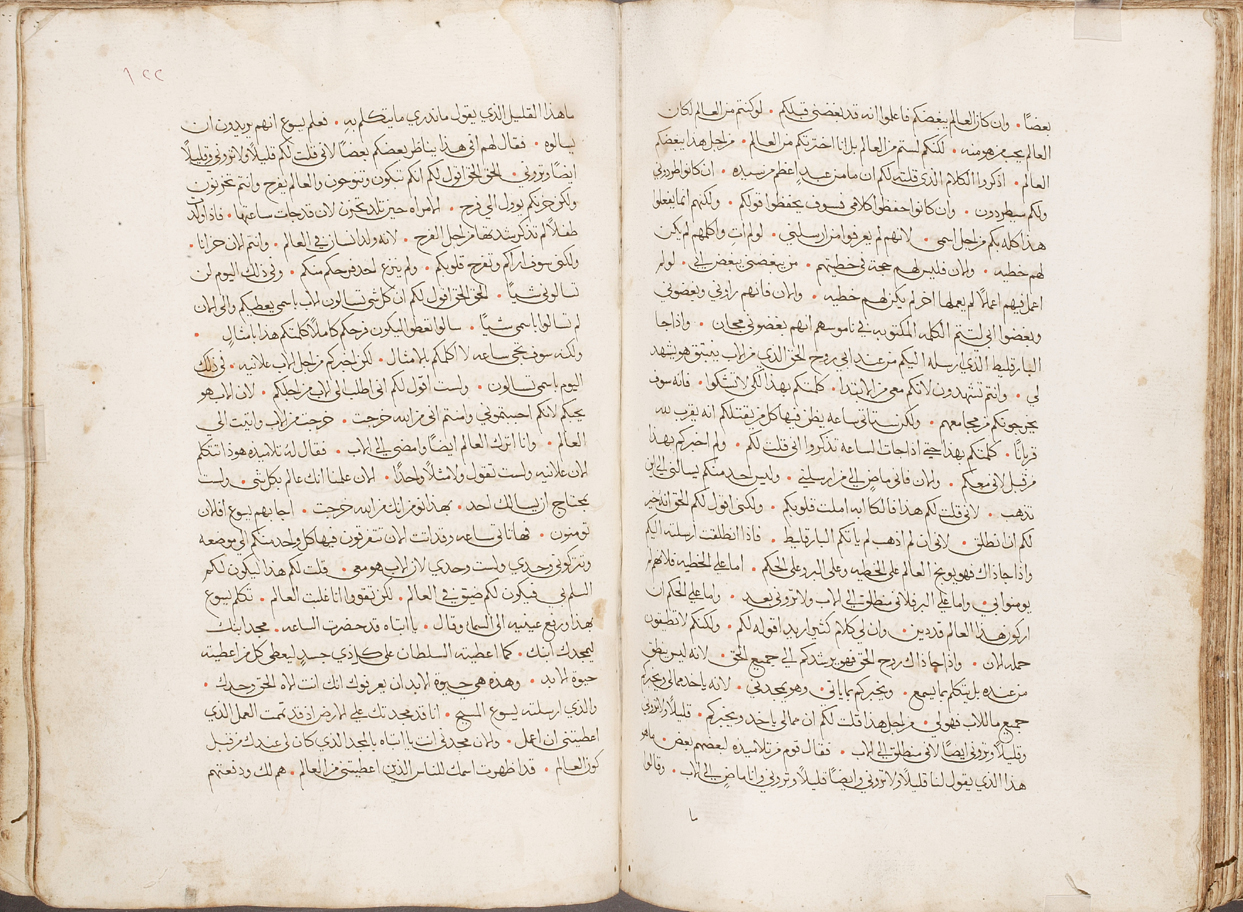 بعضًا. وان كان العالم يبغضكم فاعلموا انه قد بغضنى قبلكم. لو كنتم من العالم لكان
العالم يحب من هو منه. لكنكم لستم من العالم بل انا اخترتكم من العالم. من اجل هذا يبغضكم
العالم. اذكروا الكلام الذى قلته لكم ان ما من عبد اعظم من سيده. ان كانوا طردوني
ولكم سيطردون. وان كانوا حفظوا كلامى فسوف يحفظوا قولكم. ولكنهم انما يفعلوا
هذا كله بكم من اجل اسمى. لانهم لم يعرفوا من ارسلني. لو لم ات واكلمهم لم يكن
لهم خطيه. والان فليس لهم حجة فى خطيتهم. من يبغضنى يبغض ابي. لو لم
اعمل فيهم اعمالًا لم يعملها اخر لم يكن لهم خطيه. والان فانهم راوني وبغضوني
وبغضوا ابى لتتم الكلمه المكتوبه في ناموسهم انهم بغضوني مجان. واذا جا
البارقليط الذي ارسله اليكم من عند ابي روح الحق الذي من الاب ينبثق هو يشهد
لي. وانتم تشهدون لانكم معى من الابتدا. كلمتكم بهذا لكى لا تشكوا. فانه سوف
يخرجونكم من مجامعهم. ولكن ستاتى ساعه يظن فيها كل من يقتلكم انه يقرب لله
قربانًا. كلمتكم بهذا حتى اذا جات الساعه تذكروا انى قلت لكم. ولم اخبركم بهذا
من قبل لانى معكم. والان فانى ماضٍ الي من ارسلنى. وليس احد منكم يسالنى الى اين
تذهب. لانى قلت لكم هذا فالكابه املت قلوبكم. ولكنى اقول لكم الحق انه خير
لكم ان انطلق. لانى ان لم اذهب لم ياتكم البارقليط. فاذا انطلقت ارسلته اليكم
واذا جا ذاك فهو يوبخ العالم على الخطيه وعلى البر وعلى الحكم. اما على الخطيه فلانهم لم
يومنوا بى. واما على البر فلانى منطلق الي الاب ولا ترونى بعد. واما على الحكم ان
اركون هذا العالم قد دين. وان لي كلام كثير اريد اقوله لكم. ولكنكم لا تطيقون
حمله الان. واذا جا ذاك روح الحق فهو يرشدكم الي جميع الحق. لانه ليس ينطق
من عنده بل يتكلم بما يسمع. ويخبركم بما ياتى. وهو يمجدنى. لانه ياخذ مما لي ويخبركم
جميع ما للاب فهو لي. من اجل هذا قلت لكم ان مما لي ياخد ويخبركم. قليلًا ولا تروني
وقليلًا وترونى ايضًا لانى منطلق الي الاب. فقال قوم من تلاميذه لبعضهم بعض. ما هو
هذا الذي يقول لنا قليلًا ولا تروني وايضًا قليلًا وتروني وانا ماضٍ الي الاب. وقالوا
ما
٩٢٢
ما هذا القليل الذي يقول ما ندري ما يتكلم به. فعلم يسوع انهم يريدون ان
يسالوه. فقال لهم افى هذا يناظر بعضكم بعضًا لانى قلت لكم قليلًا ولا تروني وقليلًا
ايضًا وتروني. الحق الحق اقول لكم انكم تبكون وتنوحون والعالم يفرح وانتم تحزنون
ولكن حزنكم يوول الي فرح. الامراه حين تلد تحزن لان قد جات ساعتها. فاذا ولدت
طفلًا لم تذكر شدتها من اجل الفرح. لانه ولد انسان في العالم. وانتم الان حزانا.
ولكنى سوف اراكم وتفرح قلوبكم. ولم ينزع احد فرحكم منكم. وفى ذلك اليوم لن
تسالوني شيًا. الحق الحق اقول لكم ان كل شى تسالون الاب باسمى يعطيكم والى الان
لم تسالوا باسمى شيًا. سلوا تعطوا ليكون فرحكم كاملًا كلمتكم هذا بامثال.
ولكنه سوف تجى ساعه لا اكلمكم بالامثال. لكن اخبركم من اجل الاب علانيه. فى ذلك
اليوم باسمى تسالون. ولست اقول لكم انى اطلب الى الاب من اجلكم. لان الاب هو
يحبكم لانكم احببتموني وامنتم انى من الله خرجت. خرجت من الاب واتيت الى
العالم. وانا اترك العالم ايضًا وامضى الي الاب. فقال له تلاميذه هوذا تتكلم
الان علانيه ولست تقول ولا مثلًا واحدًا. الان علمنا انك عالم بكل شى. ولست
بمحتاج ان يسالك احد. بهذا نومن انك من الله خرجت. اجابهم يسوع افالان
تومنون. فها تاتى ساعه وقد اتت الان تتفرقون فيها كل واحد منكم الى موضعه
وتتركوني وحدي ولست وحدي لان الاب هو معى. قلت لكم هذا ليكون لكم
السلم بى. فيكون لكم ضيق فى العالم. لكن تقووا انا غلبت العالم. تكلم يسوع
بهذا ورفع عينيه الى السما وقال. يا ابتاه قد حضرت الساعه. مجد ابنك
ليمجدك ابنك. كما اعطيته السلطان على كل ذي جسدٍ ليعطى كل من اعطيته
حيوة الابد. وهذه هى حيوة الابد ان يعرفوك انك انت الاه الحق وحدك.
والذي ارسلته يسوع المسيح. انا قد مجدتك على الارض اذ قد تممت العمل الذي
اعطيتنى ان اعمل. والان مجدنى انت يا ابتاه بالمجد الذي كان لي عندك من قبل
كون العالم. قد اظهرت اسمك للناس الذين اعطيتنى من العالم. هم لك ودفعتهم